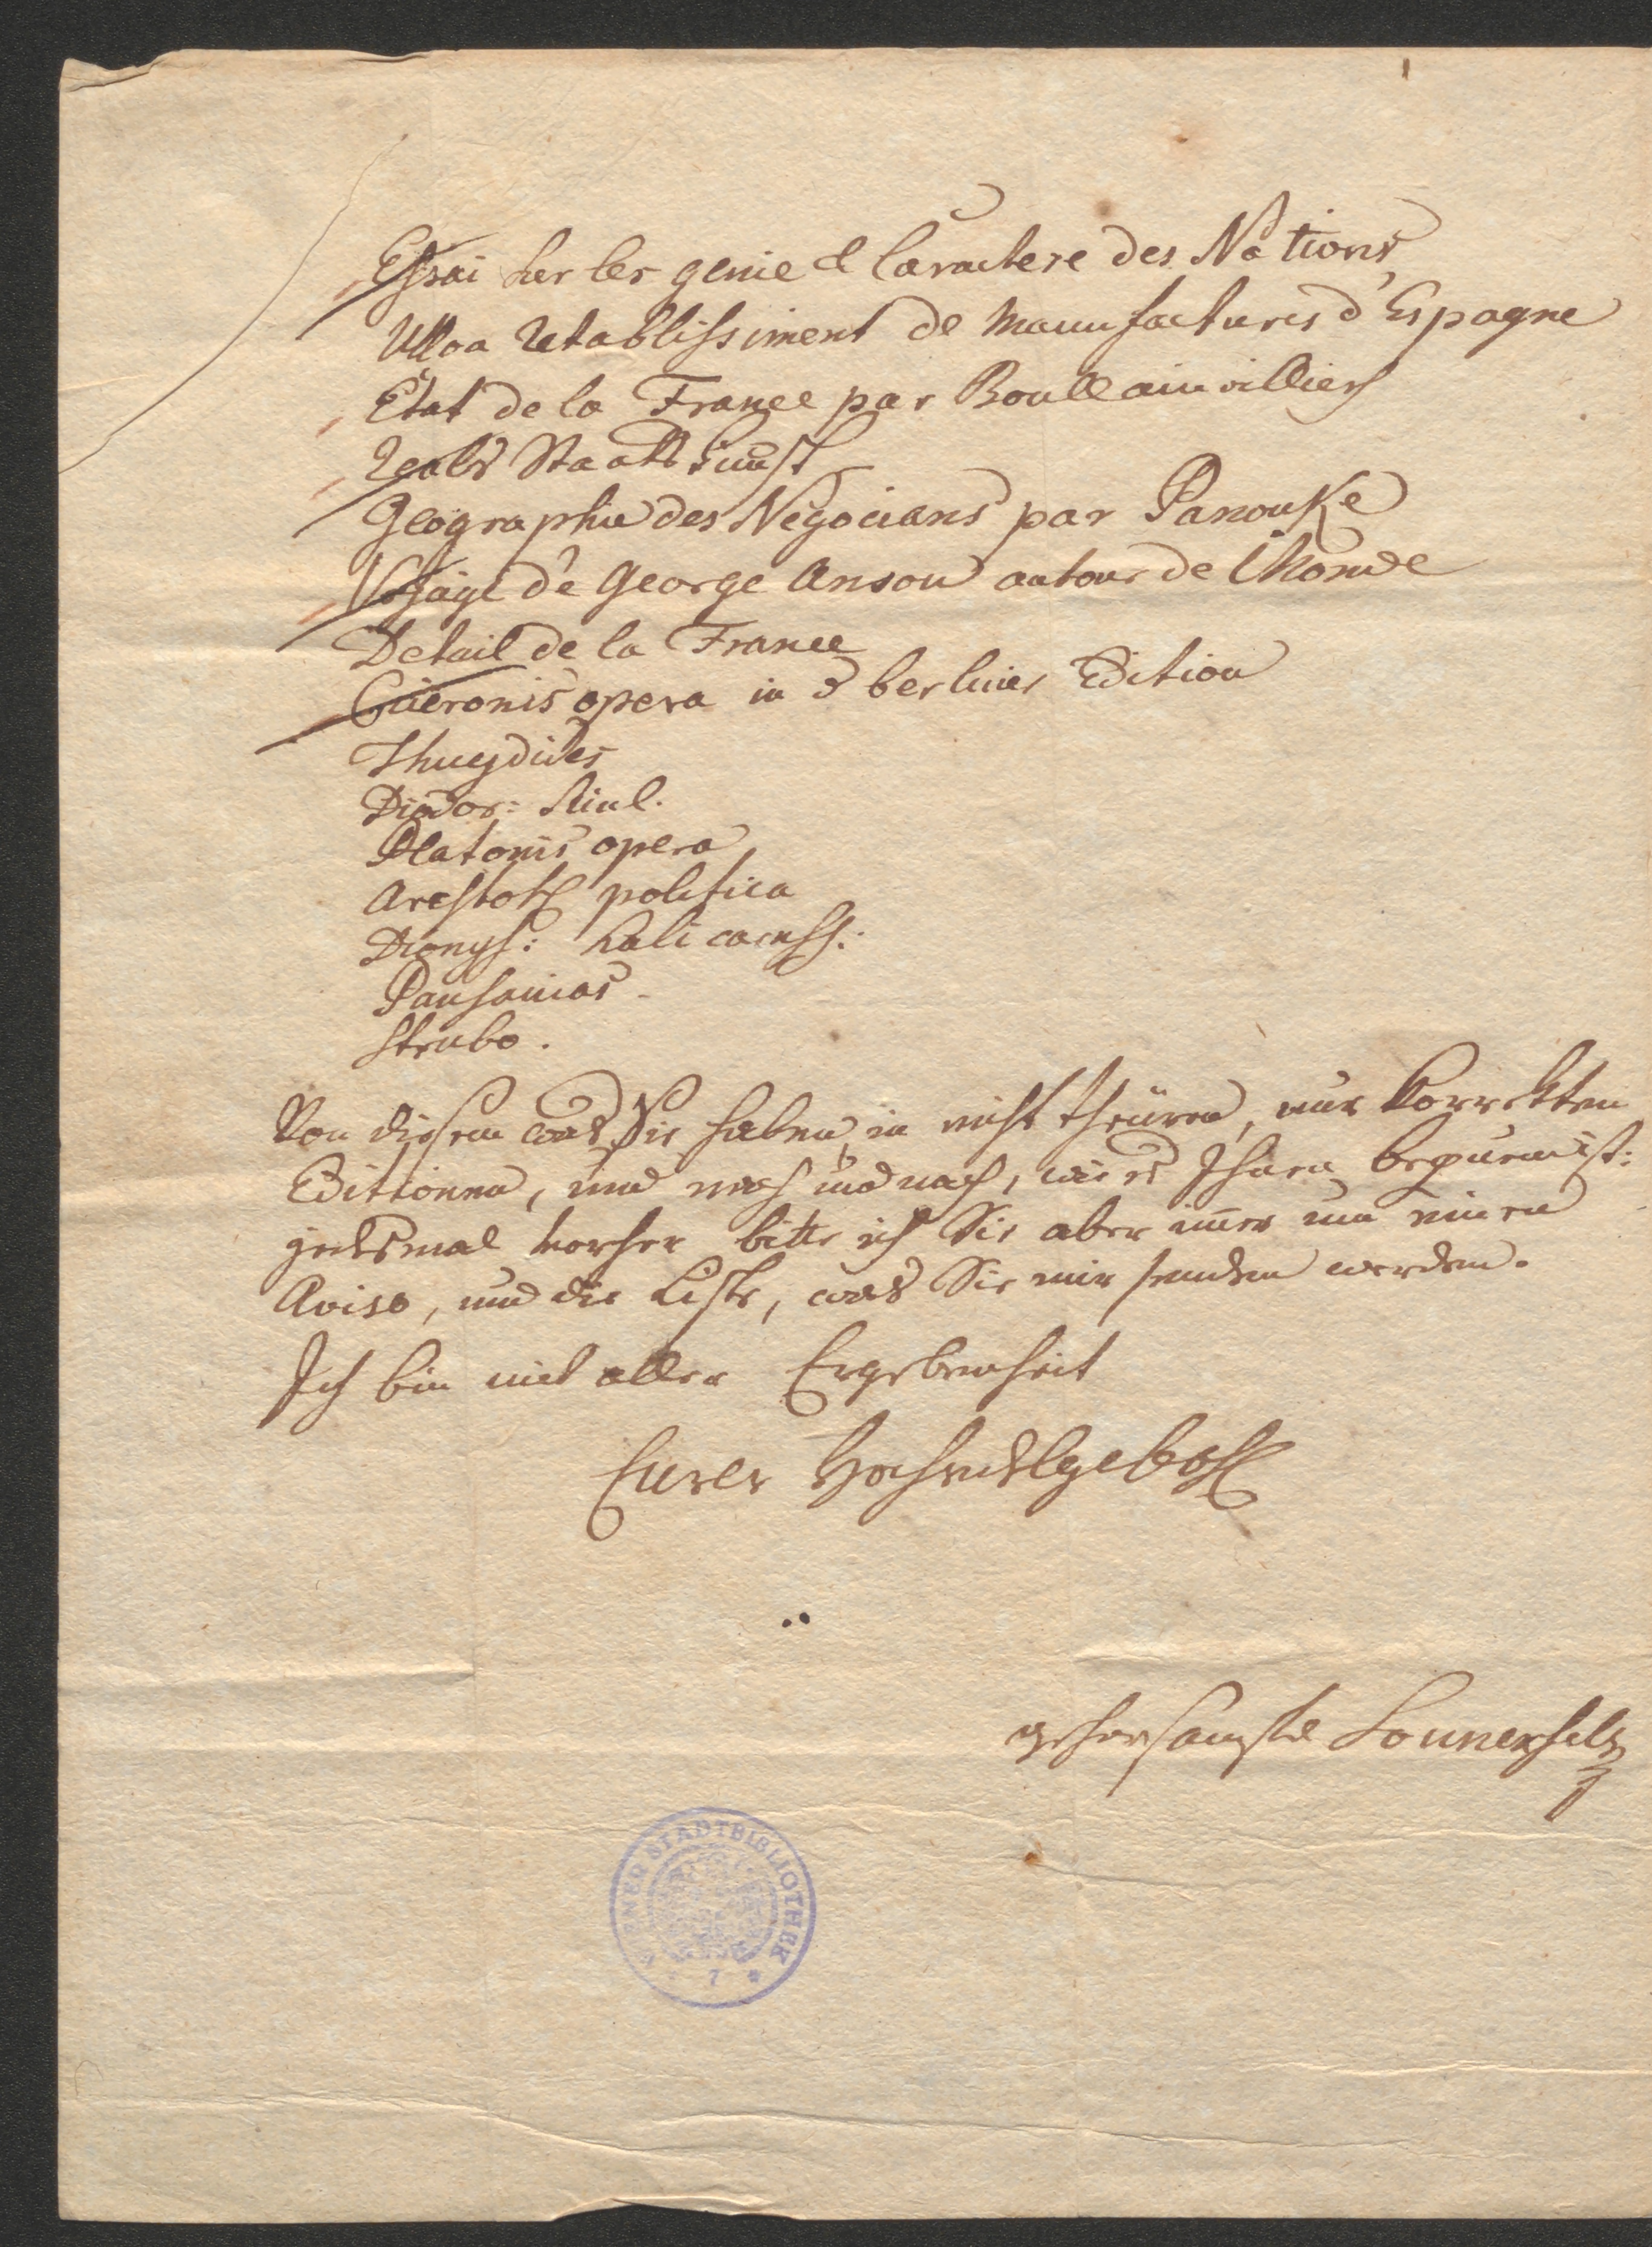 Essai sur les genie et Caractere des Nations
Ulloa retablissiment de Manufactures d'Espagne
Etat de la France par Boullainvilliers
Reals Staatskunst
Geographie des Negocians par Panouke
Voyage de George Anson autour de Monde
Detail de la France
Ciceronis opera in 8 berliner Edition
Thucydides
Diodor: Sicul.
Platonis opera
Arestot politica
Dionys: halicarnss:
Pausanias.
Strabo.
Von diesem was Sie haben, in nicht theuren, nur korrekten
Editionen, und nach und nach, wie es Ihnen bequem ist:
jedesmal vorher bitte ich Sie aber immer um einen
Aviso, und die Liste, was Sie mir senden werden.
Ich bin mit aller Ergebenheit
Eurer Hochedelgeb
gehorsamste Sonnenfels
WIENER STADTBIBLIOTHEK
* 7 *